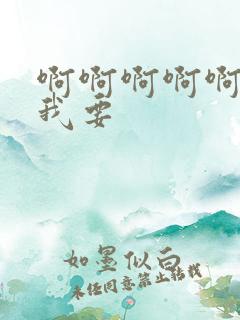 啊啊啊啊啊
我要
如墨似白
未经同意禁止转载